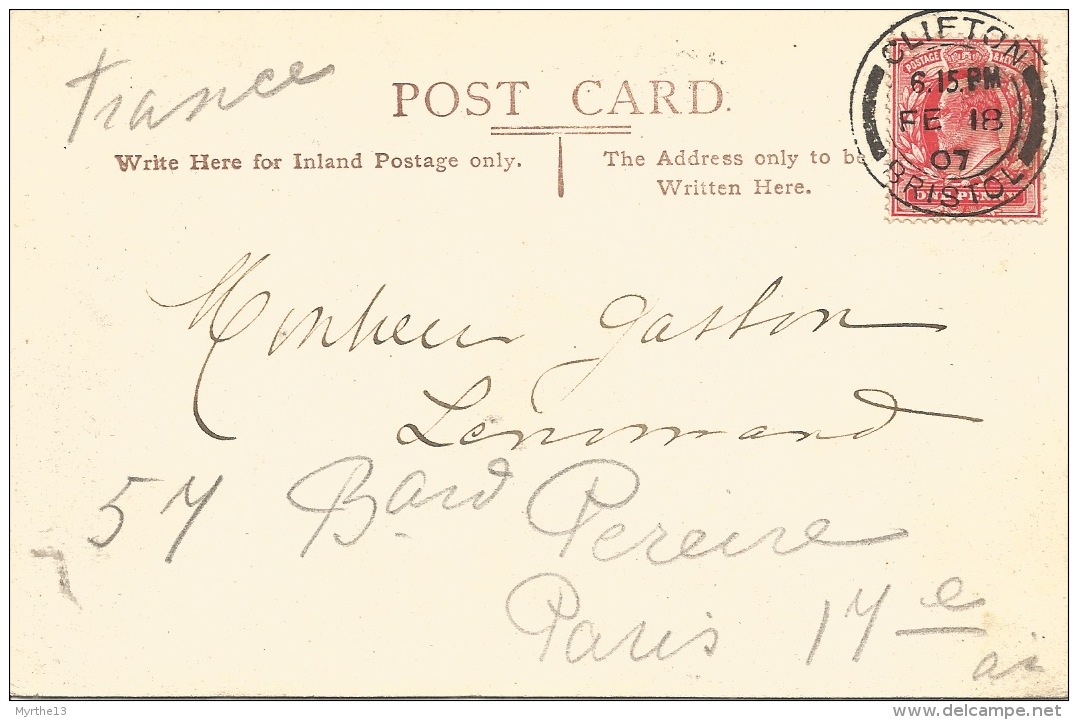 France
POST CARD.
Write Here for Inland Postage only.
The Address only to be
Written Here.
CLIFTON
6.15.PM
FE 18
07
BRISTOL
POSTAGE
Monsieur Gaston
Lenormand
57 Bard Pereire
Paris 17e
Myrthe13
delcampe.net